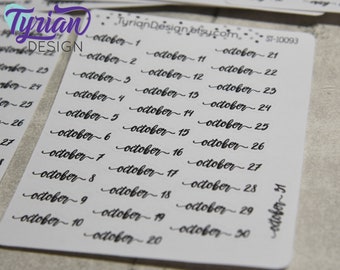 Tyrian
DESIGN
TyrianDesign.etsy.com
ST-10093
october 1
october 2
october 3
october 4
october 5
october 6
october 7
october 8
october 9
october 10
october 11
october 12
october 13
october 14
october 15
october 16
october 17
october 18
october 19
october 20
october 21
october 22
october 23
october 24
october 25
october 26
october 27
october 28
october 29
october 30
october 31